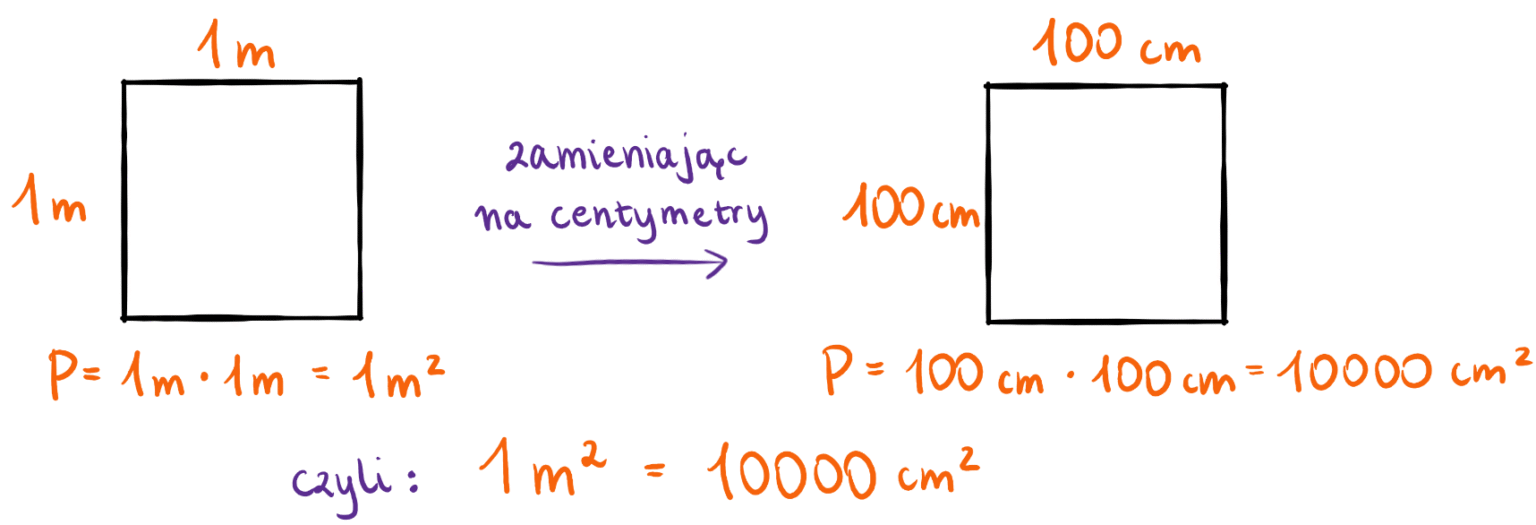 1m
100 cm
zamieniając
na centymetry
1m
100cm
P= 1m · 1m = 1m²
P = 100 cm · 100 cm = 10000 cm²
czyli: 1m² = 10000 cm²